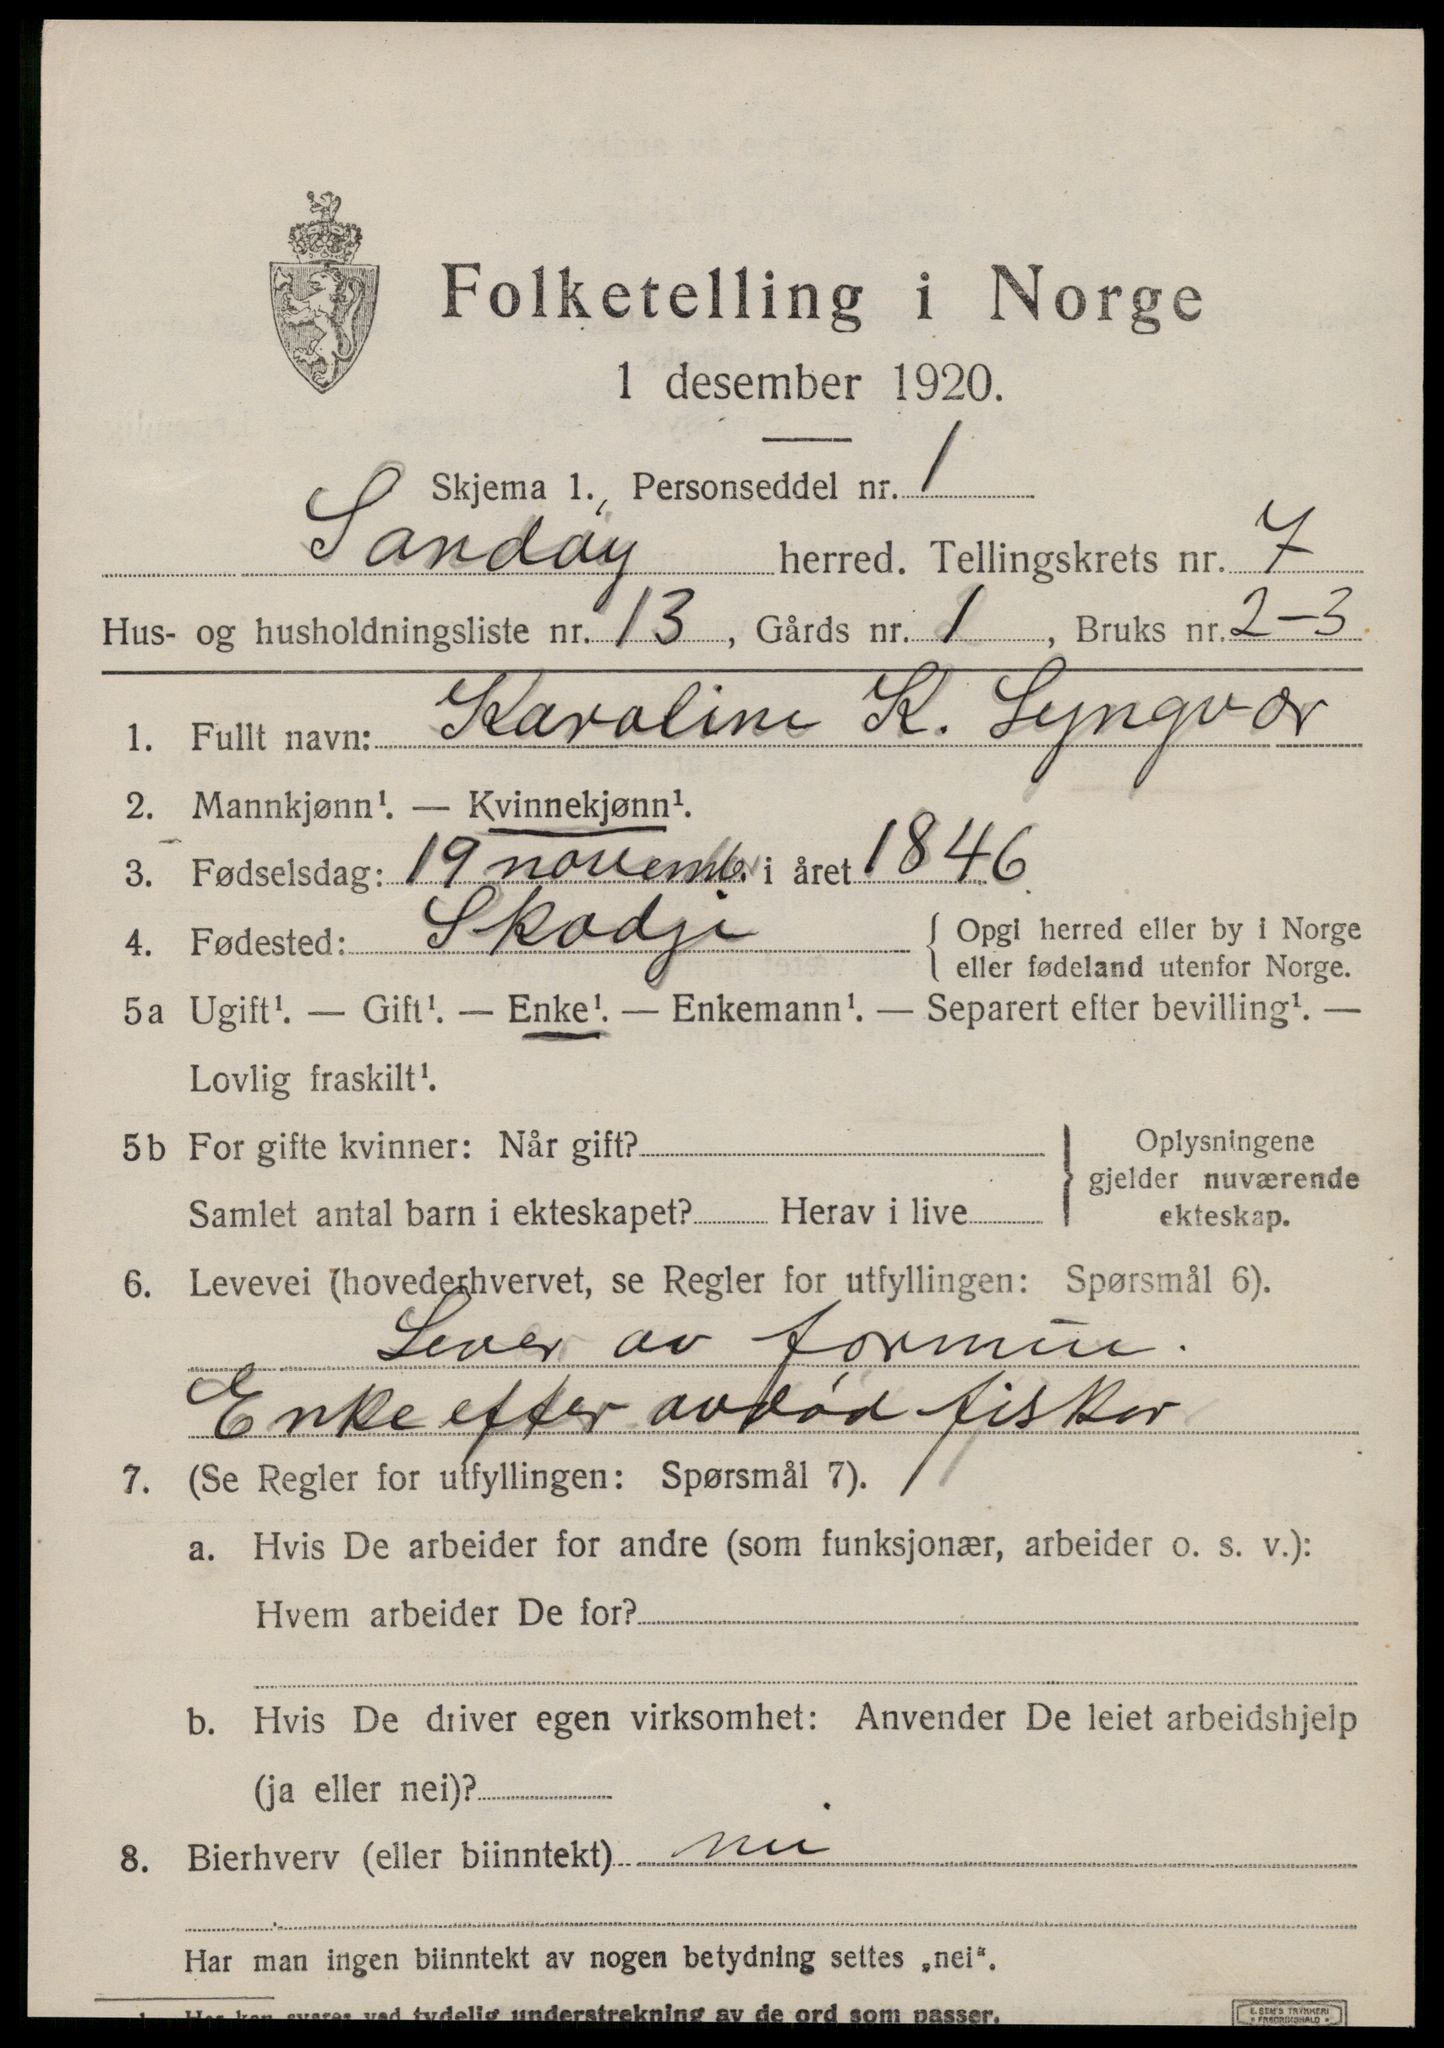 Folketelling i Norge
1 desember 1920.
Skjema 1. Personseddel nr. 1
Sandøy herred. Tellingskrets nr. 7
Hus- og husholdningsliste nr. 13, Gårds nr. 1, Bruks nr. 2-3
1. Fullt navn: Karoline K. Lyngvær
2. Mannkjønn¹. — Kvinnekjønn¹.
3. Fødselsdag: 19 novemb. i året 1846
4. Fødested: Skodje { Opgi herred eller by i Norge
eller fødeland utenfor Norge.
5a Ugift¹. — Gift¹. — Enke¹. — Enkemann¹. — Separert efter bevilling¹. —
Lovlig fraskilt¹.
5b For gifte kvinner: Når gift? } Oplysningene
gjelder nuværende
Samlet antal barn i ekteskapet? Herav i live ekteskap.
6. Levevei (hovederhvervet, se Regler for utfyllingen: Spørsmål 6).
Lever av formue.
Enke efter avdød fisker
7. (Se Regler for utfyllingen: Spørsmål 7).
a. Hvis De arbeider for andre (som funksjonær, arbeider o. s. v.):
Hvem arbeider De for?
b. Hvis De driver egen virksomhet: Anvender De leiet arbeidshjelp
(ja eller nei)?
8. Bierhverv (eller biinntekt) nei
Har man ingen biinntekt av nogen betydning settes „nei“.
1. Her kan svares ved tydelig understrekning av de ord som passer.
E. SEM'S TRYKKERI
FREDRIKSHALD